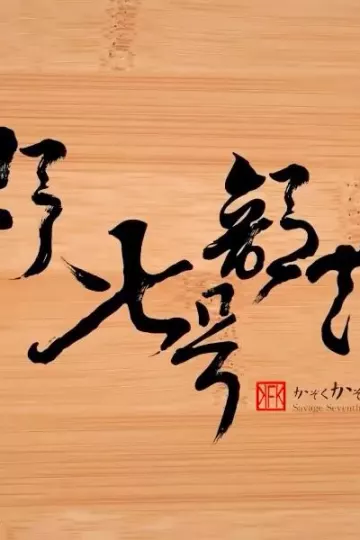 野人七号部
KFK
かぞくかぞ
Savage Seventh